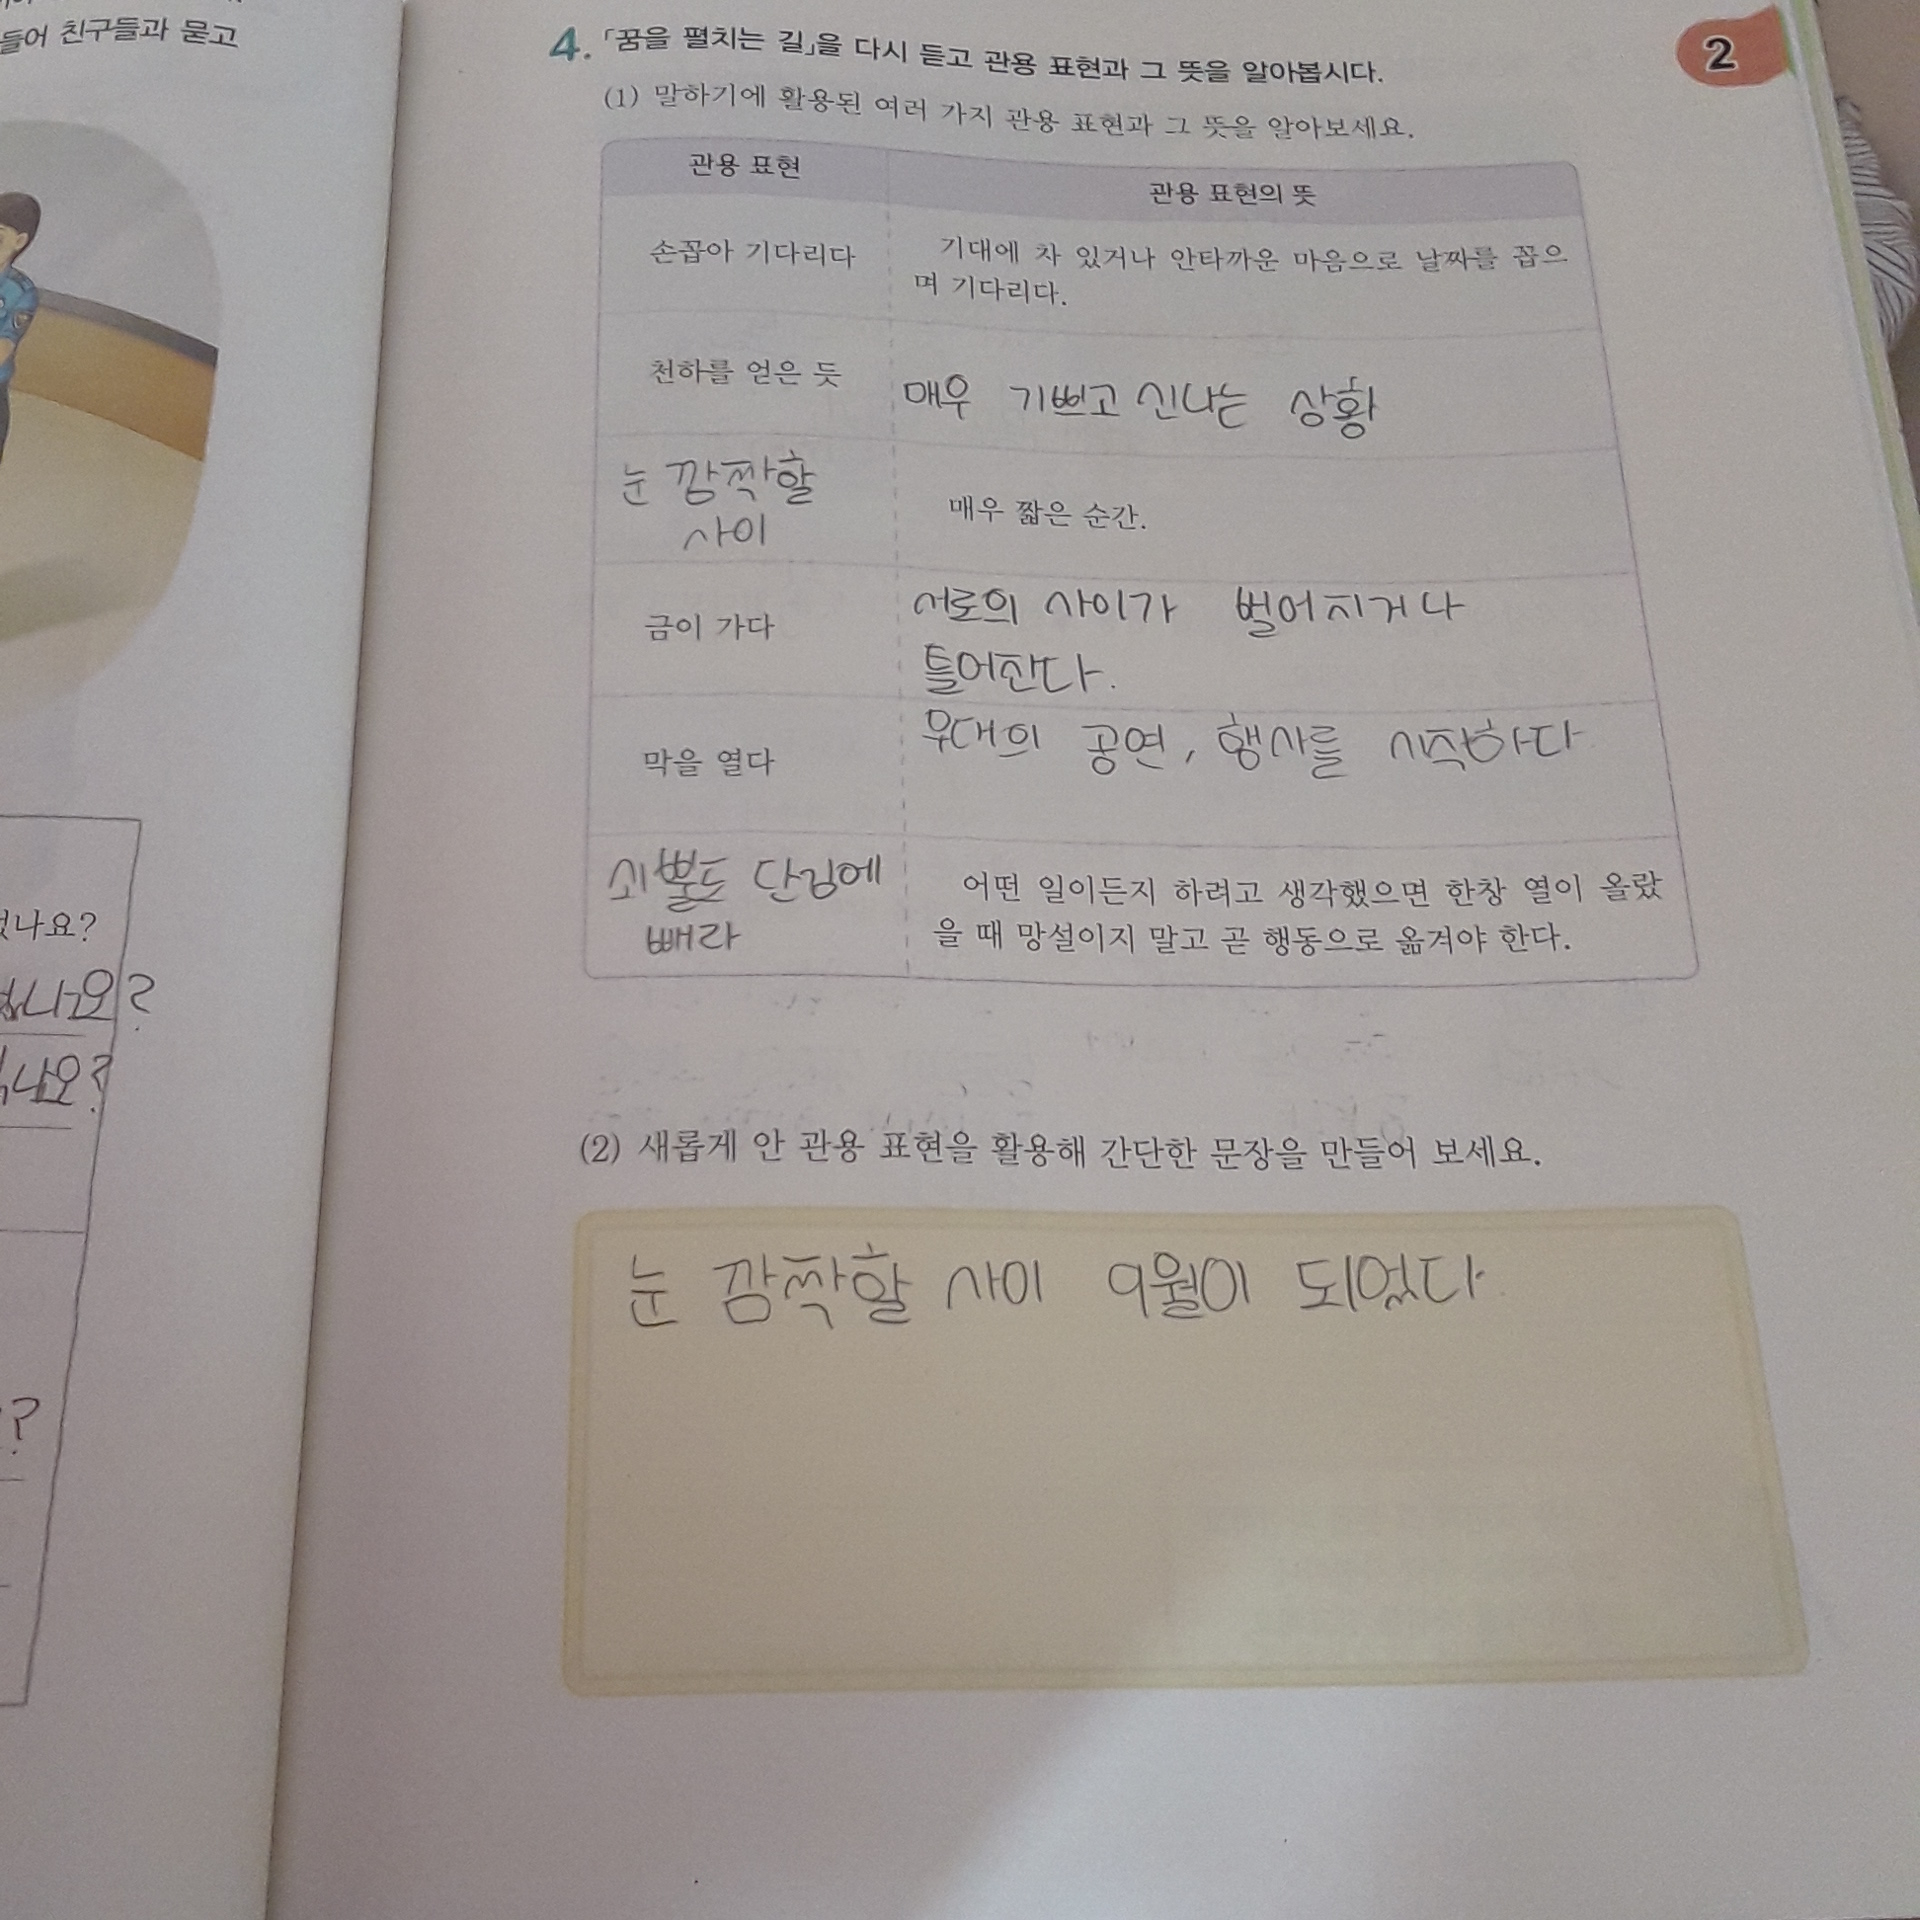 들어 친구들과 묻고
나요?
나요?
나요?
?
4. 「꿈을 펼치는 길」을 다시 듣고 관용 표현과 그 뜻을 알아봅시다.
2
(1) 말하기에 활용된 여러 가지 관용 표현과 그 뜻을 알아보세요.
관용 표현
관용 표현의 뜻
손꼽아 기다리다
기대에 차 있거나 안타까운 마음으로 날짜를 꼽으
며 기다리다.
천하를 얻은 듯
매우 기쁘고 신나는 상황
눈 깜짝할
사이
매우 짧은 순간.
금이 가다
서로의 사이가 벌어지거나
틀어진다.
막을 열다
무대의 공연, 행사를 시작하다
쇠뿔도 단김에
빼라
어떤 일이든지 하려고 생각했으면 한창 열이 올랐
을 때 망설이지 말고 곧 행동으로 옮겨야 한다.
(2) 새롭게 안 관용 표현을 활용해 간단한 문장을 만들어 보세요.
눈 깜짝할 사이 9월이 되었다.